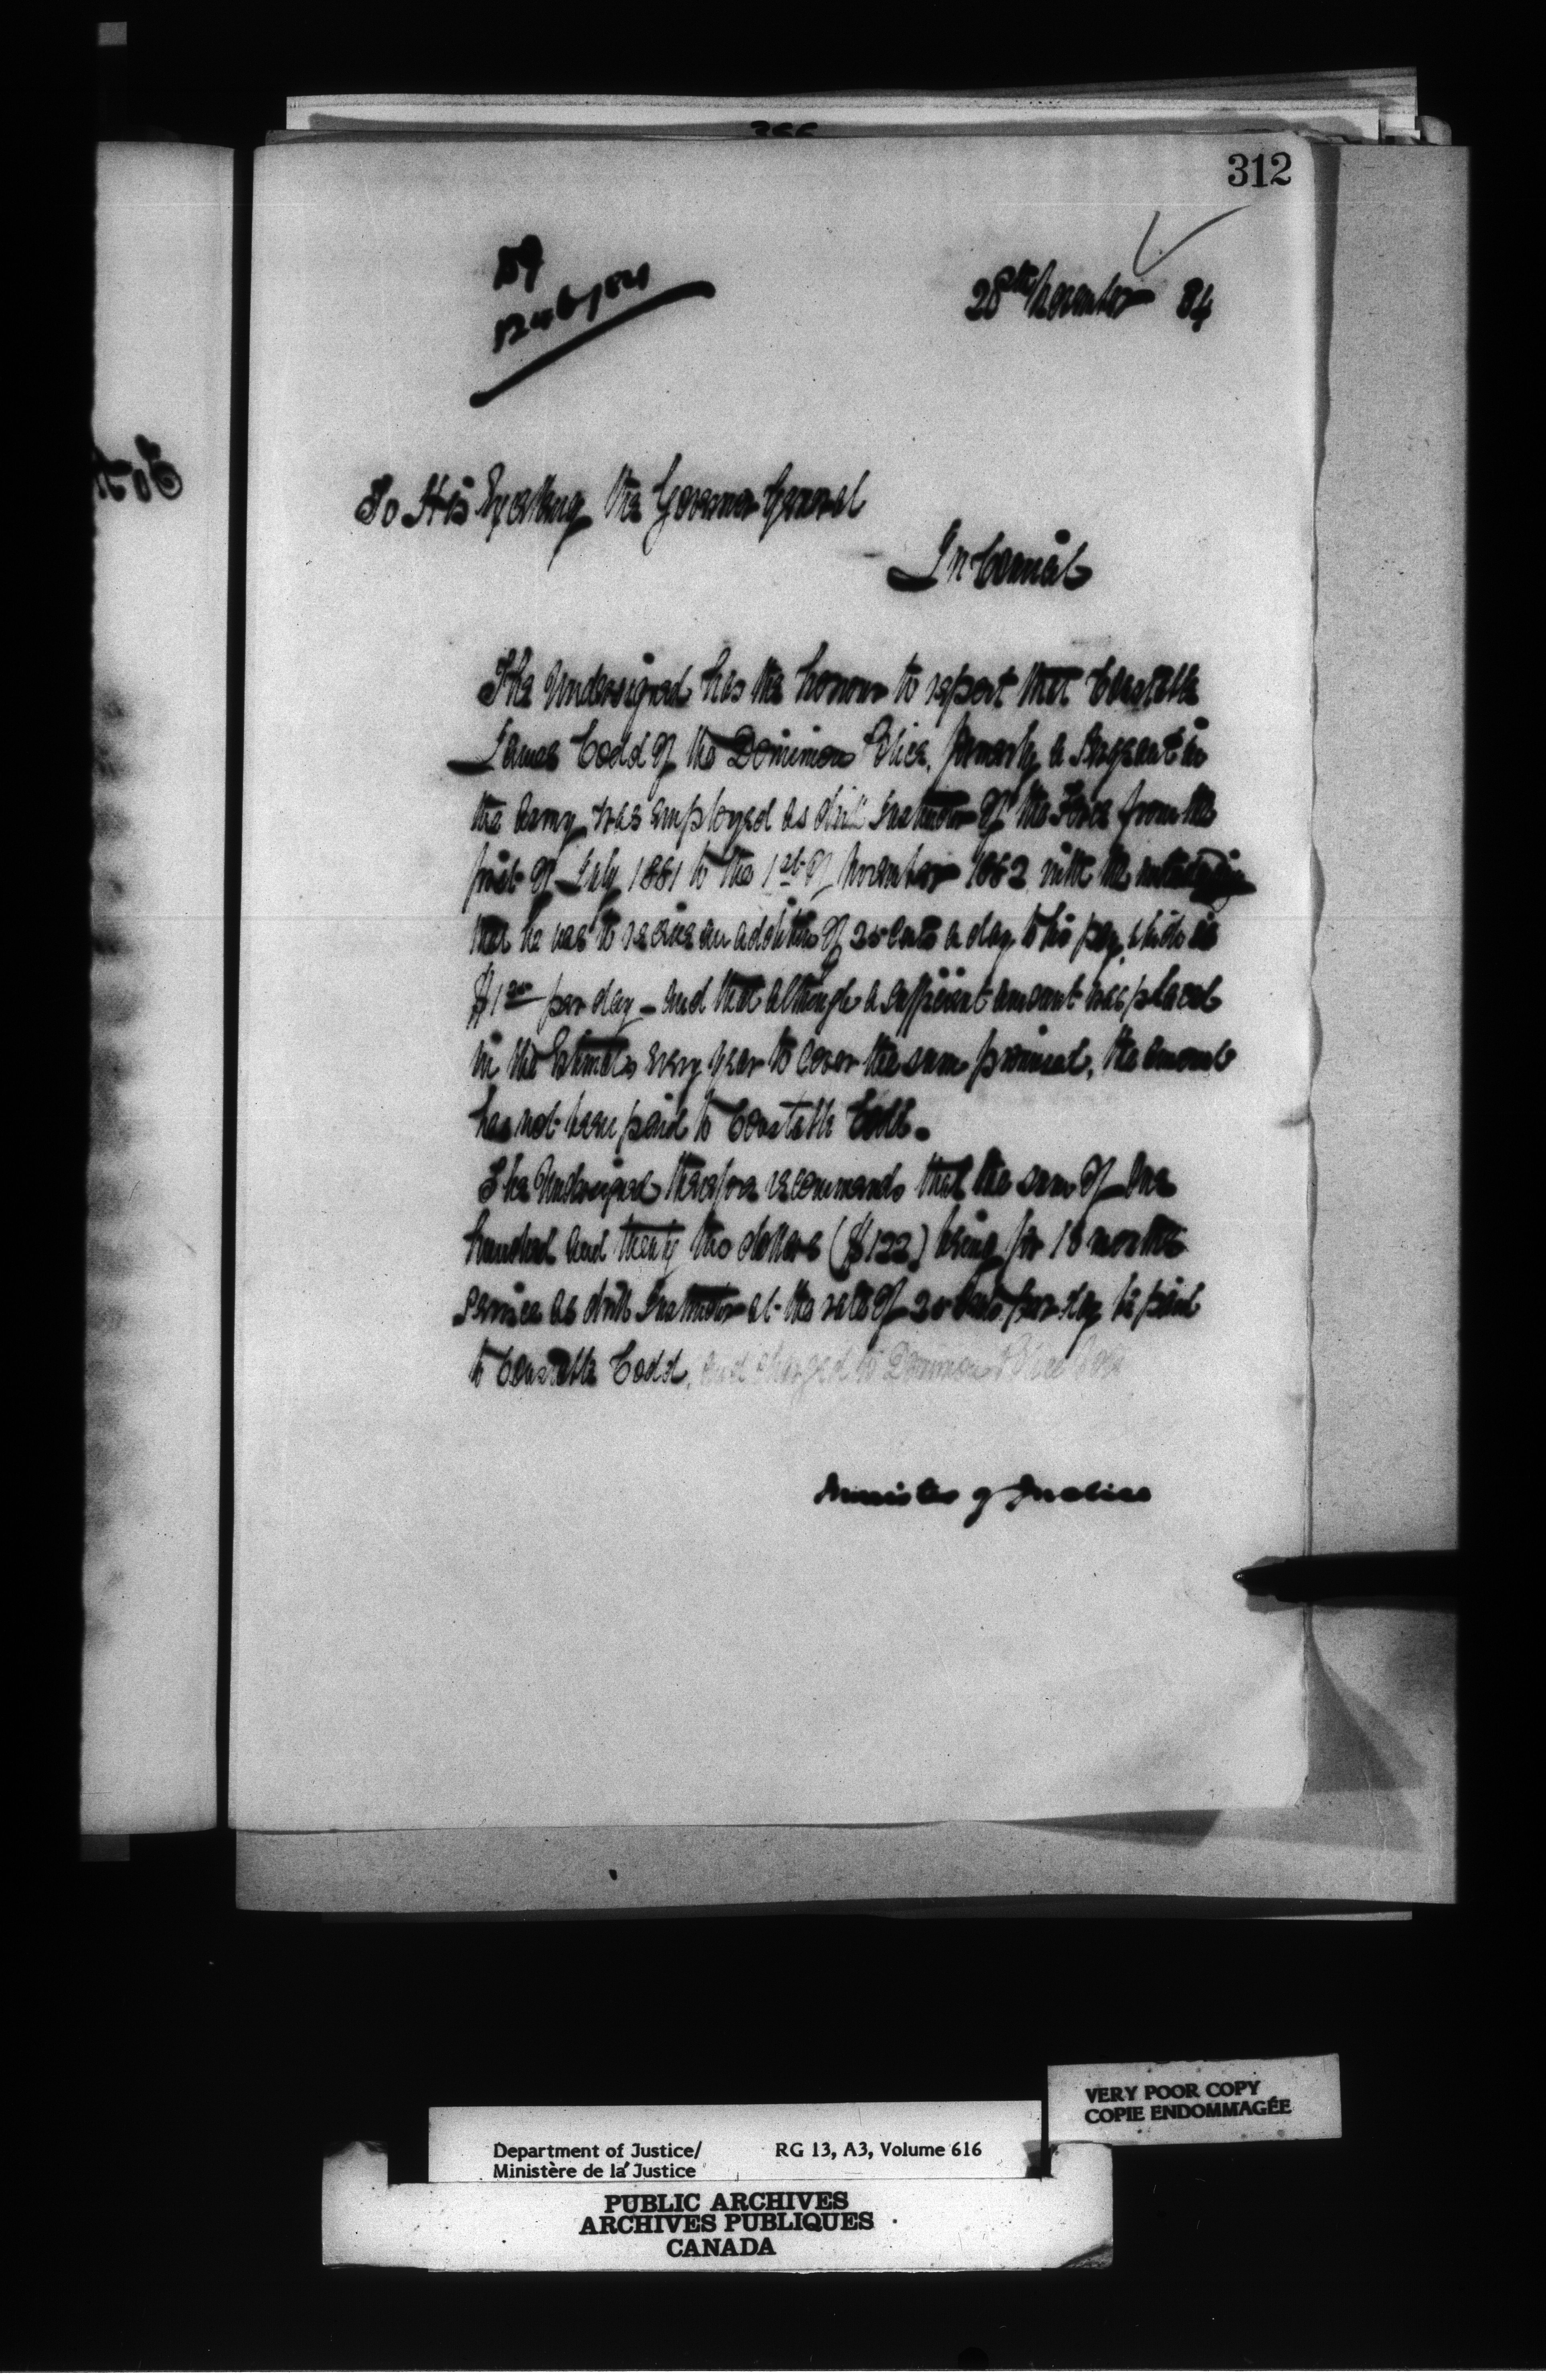 312
1246/84
28th November 84
To His Excellency the Governor General
In Council
The Undersigned has the honour to report that Constable
James Codd of the Dominion Police, formerly a Sergeant in
the Army, was employed as drill Instructor of the Force from the
first of July 1881 to the 1st of November 1882 with the understanding
that he was to receive an addition of 25 cents a day to his pay, which is
per day - and that although a sufficient amount was placed
in the Estimates every year to cover the sum promised, the amount
has not been paid to Constable Codd.
The Undersigned therefore recommends that the sum of One
hundred and twenty two dollars ($122) being for 16 months
service as drill Instructor at the rate of 25 cents per day be paid
to Constable Codd, and charged to Dominion Police
Minister of Justice
VERY POOR COPY
COPIE ENDOMMAGÉE
Department of Justice/ RG 13, A3, Volume 616
Ministère de la Justice
PUBLIC ARCHIVES
ARCHIVES PUBLIQUES
CANADA